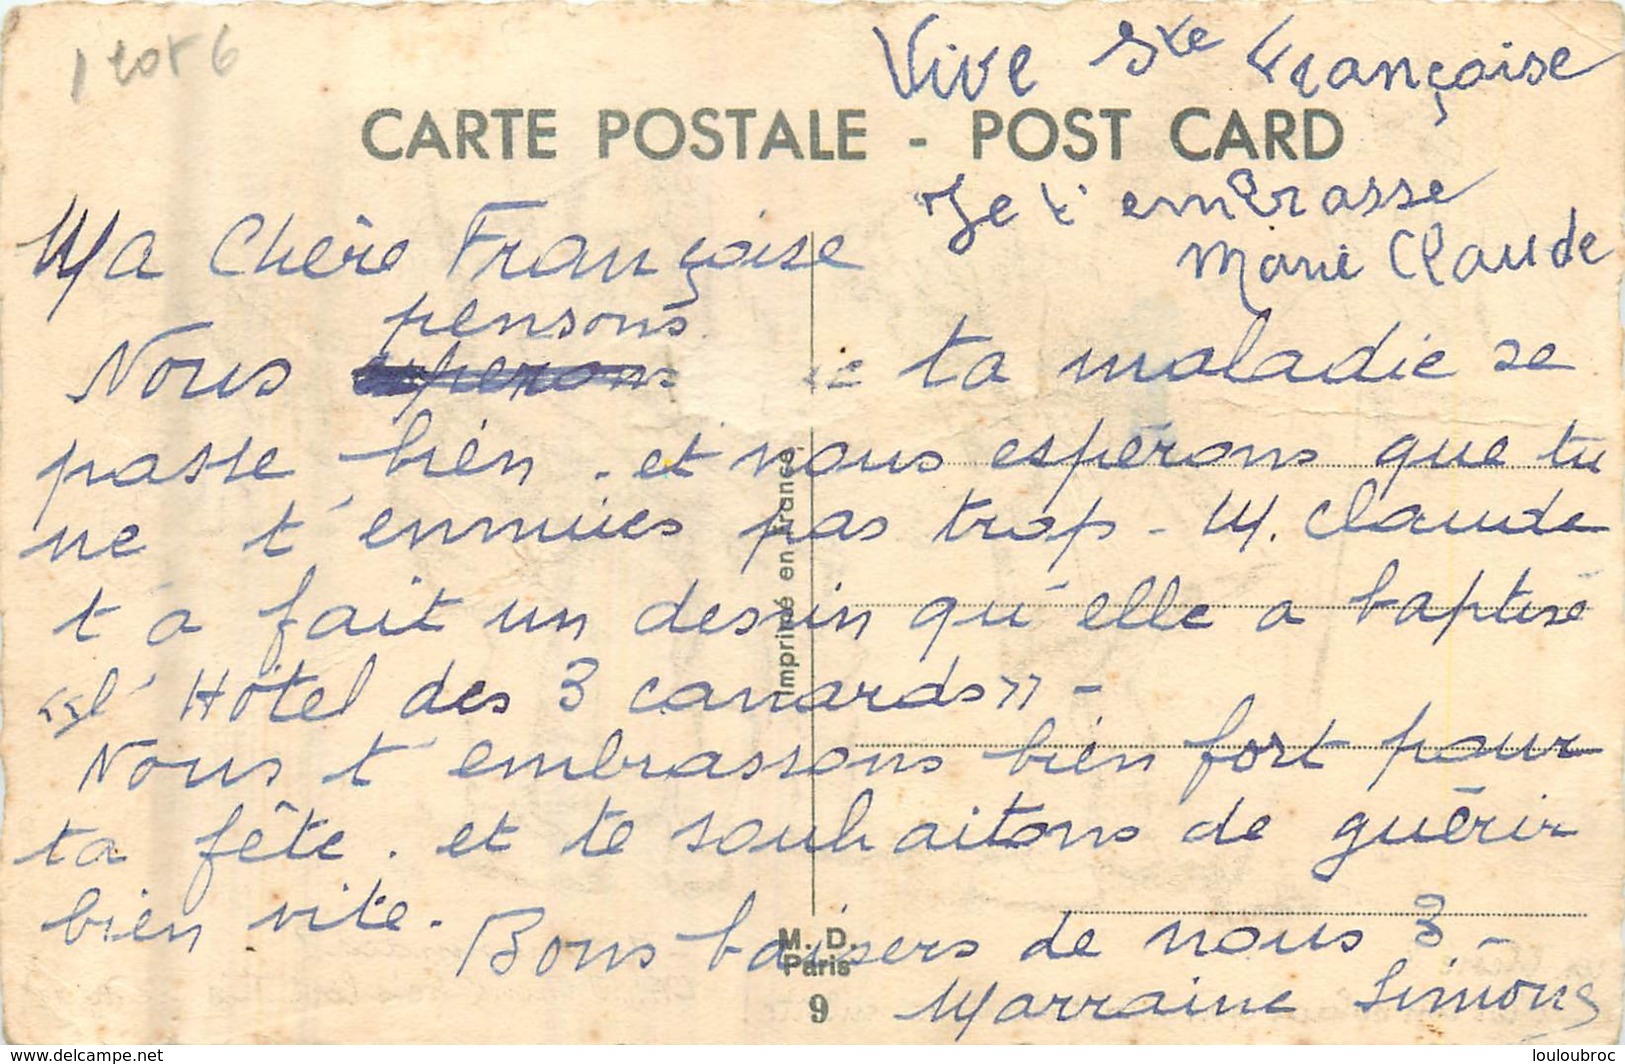 Vive Ste Françoise
CARTE POSTALE - POST CARD
Je t'embrasse
Marie Claude
Ma Chère Françoise
pensons
Nous esperons ta maladie se
passe bien. et nous espérons que tu
ne t'ennuies pas trop - M. Claude
t'a fait un dessin qu'elle a baptisé
«l'Hôtel des 3 canards» -
Nous t'embrassons bien fort pour
ta fête. et te souhaitons de guérir
bien vite.
Bons baisers de nous 3 -
Marraine Simone
Imprimé en France
M. D.
Paris
9
www.delcampe.net
louloubroc